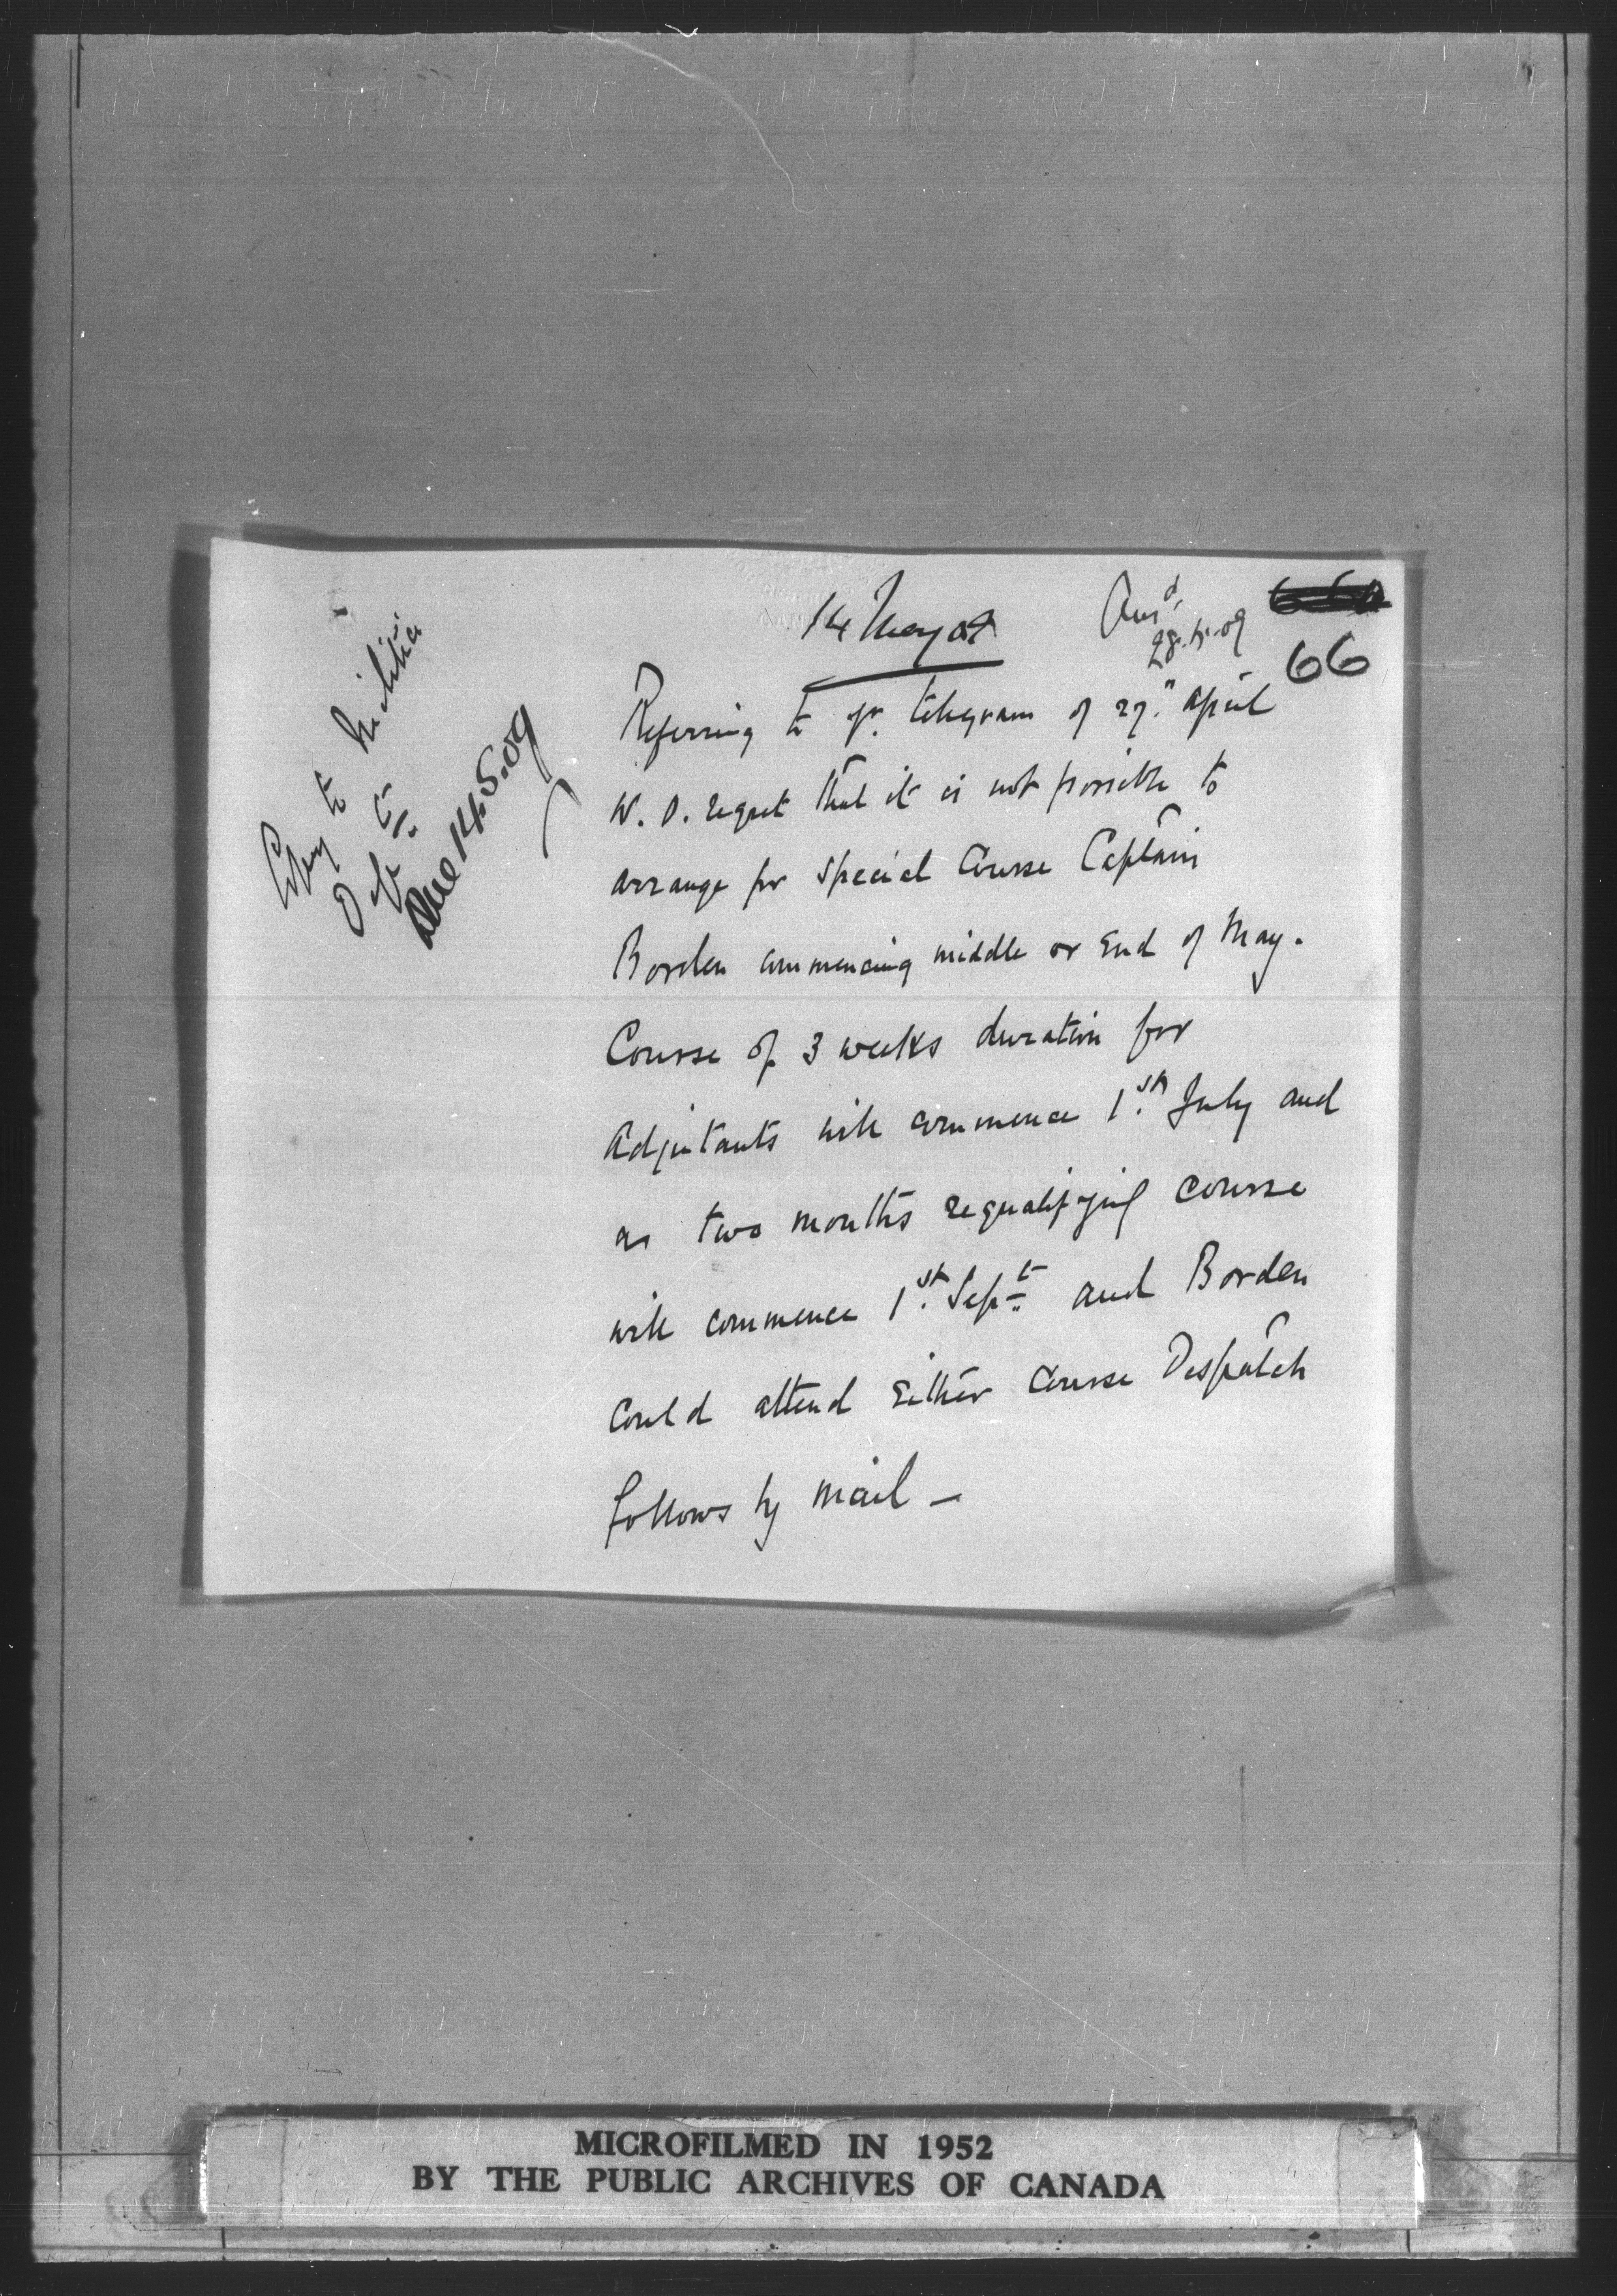 14 May 09
Ansd
28.5.09
66
Copy to Militia
Dept
Done 14.5.09
Referring to yr. telegram of 27th April
W.O. regret that it is not possible to
arrange for special Course Captain
Borden commencing middle or end of May.
Course of 3 weeks duration for
Adjutants will commence 1st July and
a two months requalifying course
will commence 1st Sept and Borden
could attend either course Despatch
follows by mail –
MICROFILMED IN 1952
BY THE PUBLIC ARCHIVES OF CANADA